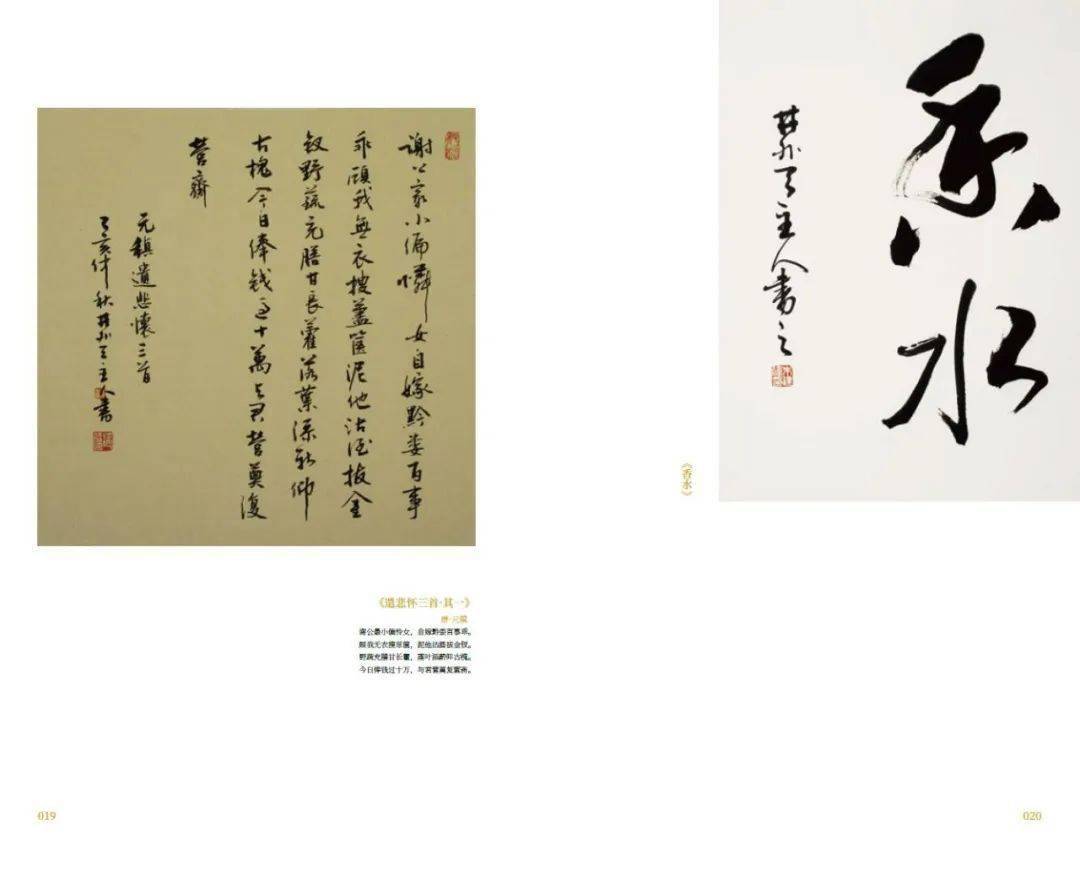 謝公家小偏憐女自嫁黔娄百事
乖顾我無衣搜藎篋泥他沽酒拔金
钗野蔬充膳甘長藿落葉添薪仰
古槐今日俸钱过十萬与君营奠復
营齋
元稹遣悲懷三首
亥仲秋井外天主人書
《遣悲怀三首·其一》
唐·元稹
谢公最小偏怜女,自嫁黔娄百事乖。
顾我无衣搜荩箧,泥他沽酒拔金钗。
野蔬充膳甘长藿,落叶添薪仰古槐。
今日俸钱过十万,与君营奠复营斋。
019
香水
井外天主人書之
《香水》
020